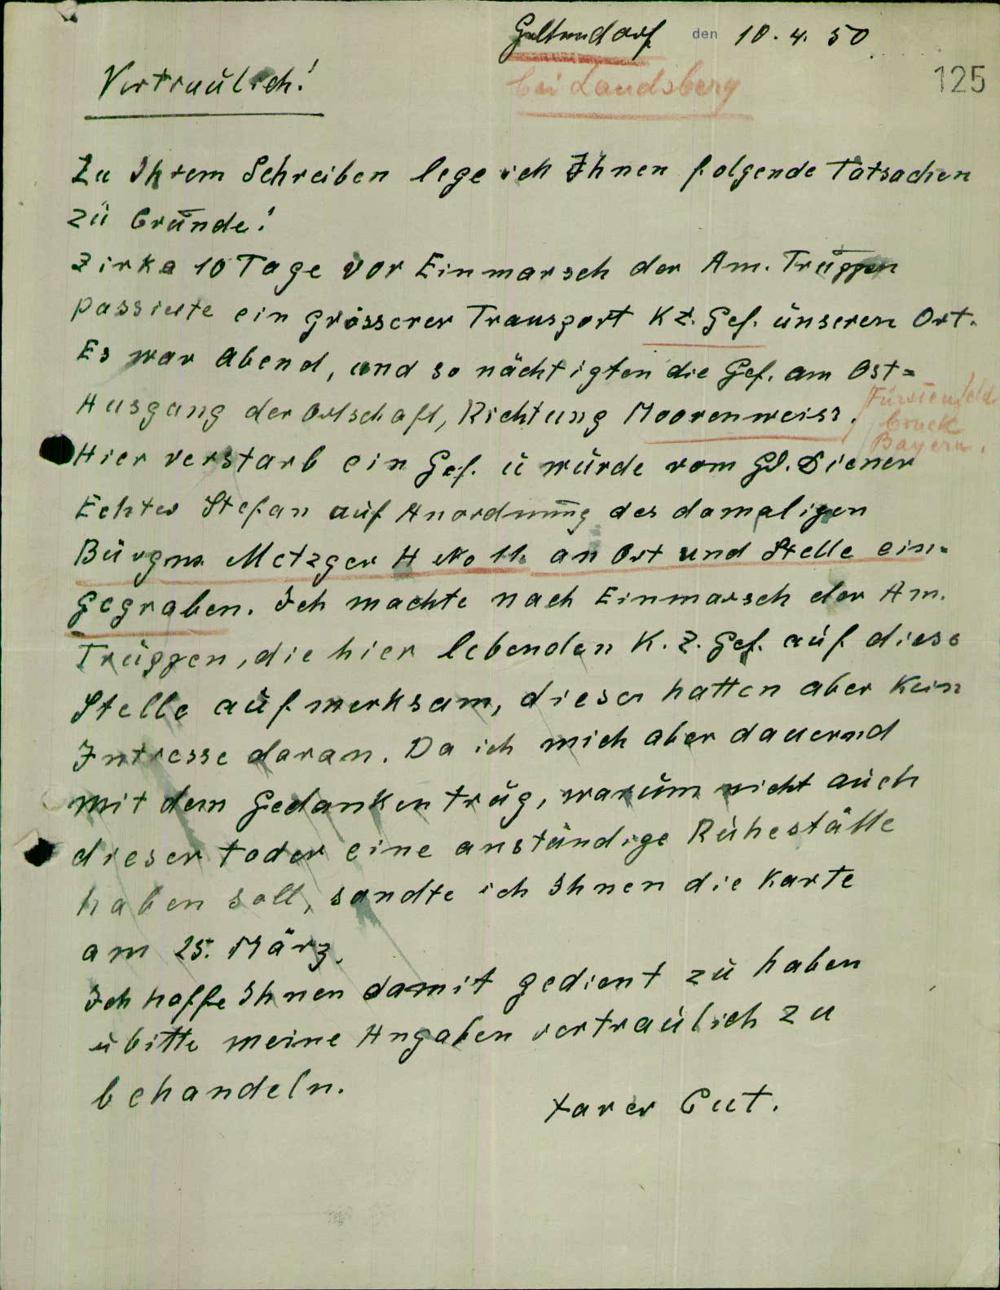 Geltendorf den 18.4.50
bei Landsberg
125
Vertraulich!
Zu Ihrem Schreiben lege ich Ihnen folgende Tatsachen
zu Grunde!
Zirka 10 Tage vor Einmarsch der Am. Truppen
passierte ein grösserer Transport Kz. Gef. unseren Ort.
Es war Abend, und so nächtigten die Gef. am Ost=
Ausgang der Ortschaft, Richtung Moorenweiss.
Fürstenfeld
bruck
Bayern.
Hier verstarb ein Gef. u wurde vom Gd. Diener
Echter Stefan auf Anordnung des damaligen
Bürgm. Metzger H No 11. an Ort und Stelle ein=
gegraben. Ich machte nach Einmarsch der Am.
Truppen, die hier lebenden K.Z. Gef. auf diese
Stelle aufmerksam, dieser hatten aber Kein
Intresse daran. Da ich mich aber dauernd
mit dem Gedanken trug, warum nicht auch
dieser toder eine anständige Ruhestätte
haben soll, sandte ich Ihnen die Karte
am 25. März.
Ich hoffe Ihnen damit gedient zu haben
u bitte meine Angaben vertraulich zu
behandeln.